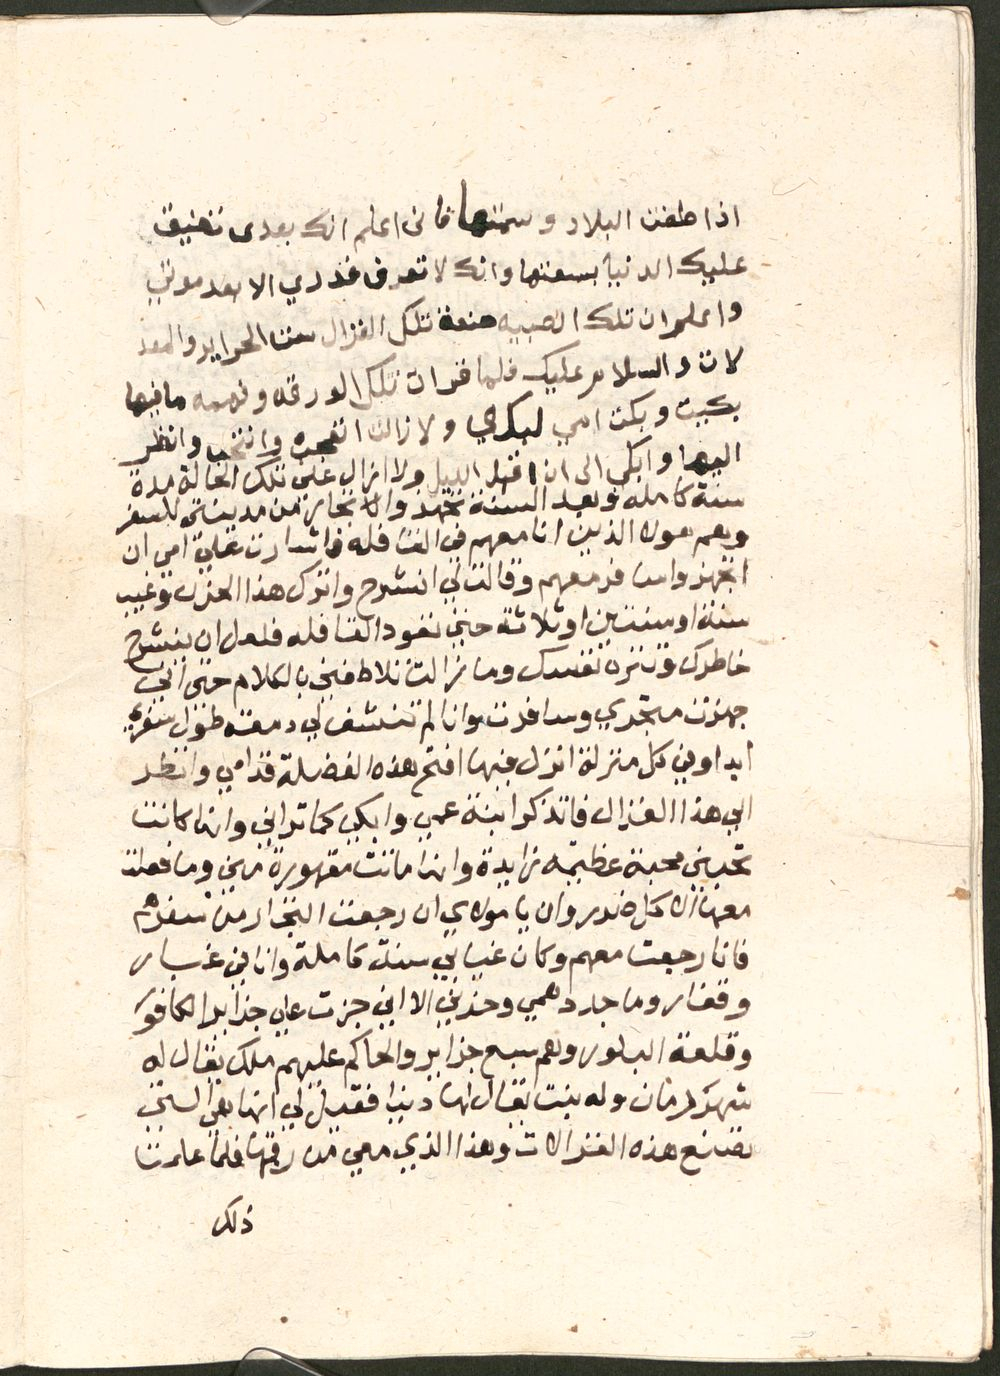 اذا طفت البلاد وسمتها فانى اعلم انك بعدى تضيق
عليك الدنيا بسعتها وانك لا تعرف قدري الا بعد موتي
واعلم ان تلك الصبيه صنعة تلك الغزال ست الحراير والمعد
لات والسلام عليك فلما قرات تلك الورقه وفهمه ما فيها
بكيت وبكت امي لبكاي ولا زالت اتفجع وانتحب وانظر
اليها وابكي الى ان اقبل الليل ولا ازال على تلك الحالة مدة
سنة كامله وبعد السنة تجهزوا التجار من مدينتي للسفر
وهم هولا الذين انا معهم في القافله فاشارت علي امي ان
اتجهز واسافر معهم وقالت لي انشرح واترك هذا الحزن وغيب
سنة او سنتين او ثلاثة حتى تعود القافله فلعل ان ينشرح
خاطرك وتنزه نفسك وما زالت تلاطفني بالكلام حتى اني
جهزت متجري وسافرت وانا لم تنشف لي دمعة طول سفري
ابدا وفي كل منزلة انزل فيها افتح هذه الفضلة قدامي وانظر
الى هذا الغزال فاتذكر ابنة عمي وابكي كما تراني وانها كانت
تحبني محبة عظيمه زايدة وانها ماتت مقهورة مني وما فعلت
معها الا كل ضرر وان يا مولاي ان رجعت التجار من سفرهم
فانا رجعت معهم وكان غيابي سنة كاملة وانا في غبار
وقفار وما جدد همي وحزني الا اني جزت على جزاير الكافور
وقلعة البلور وهم سبع جزاير والحاكم عليهم ملك يقال له
شهرمان وله بنت يقال لها دنيا فقيل لي انها هي التي
تصنع هذه الغزالات وهذا الذي معي من رقمها فلما علمت
ذلك